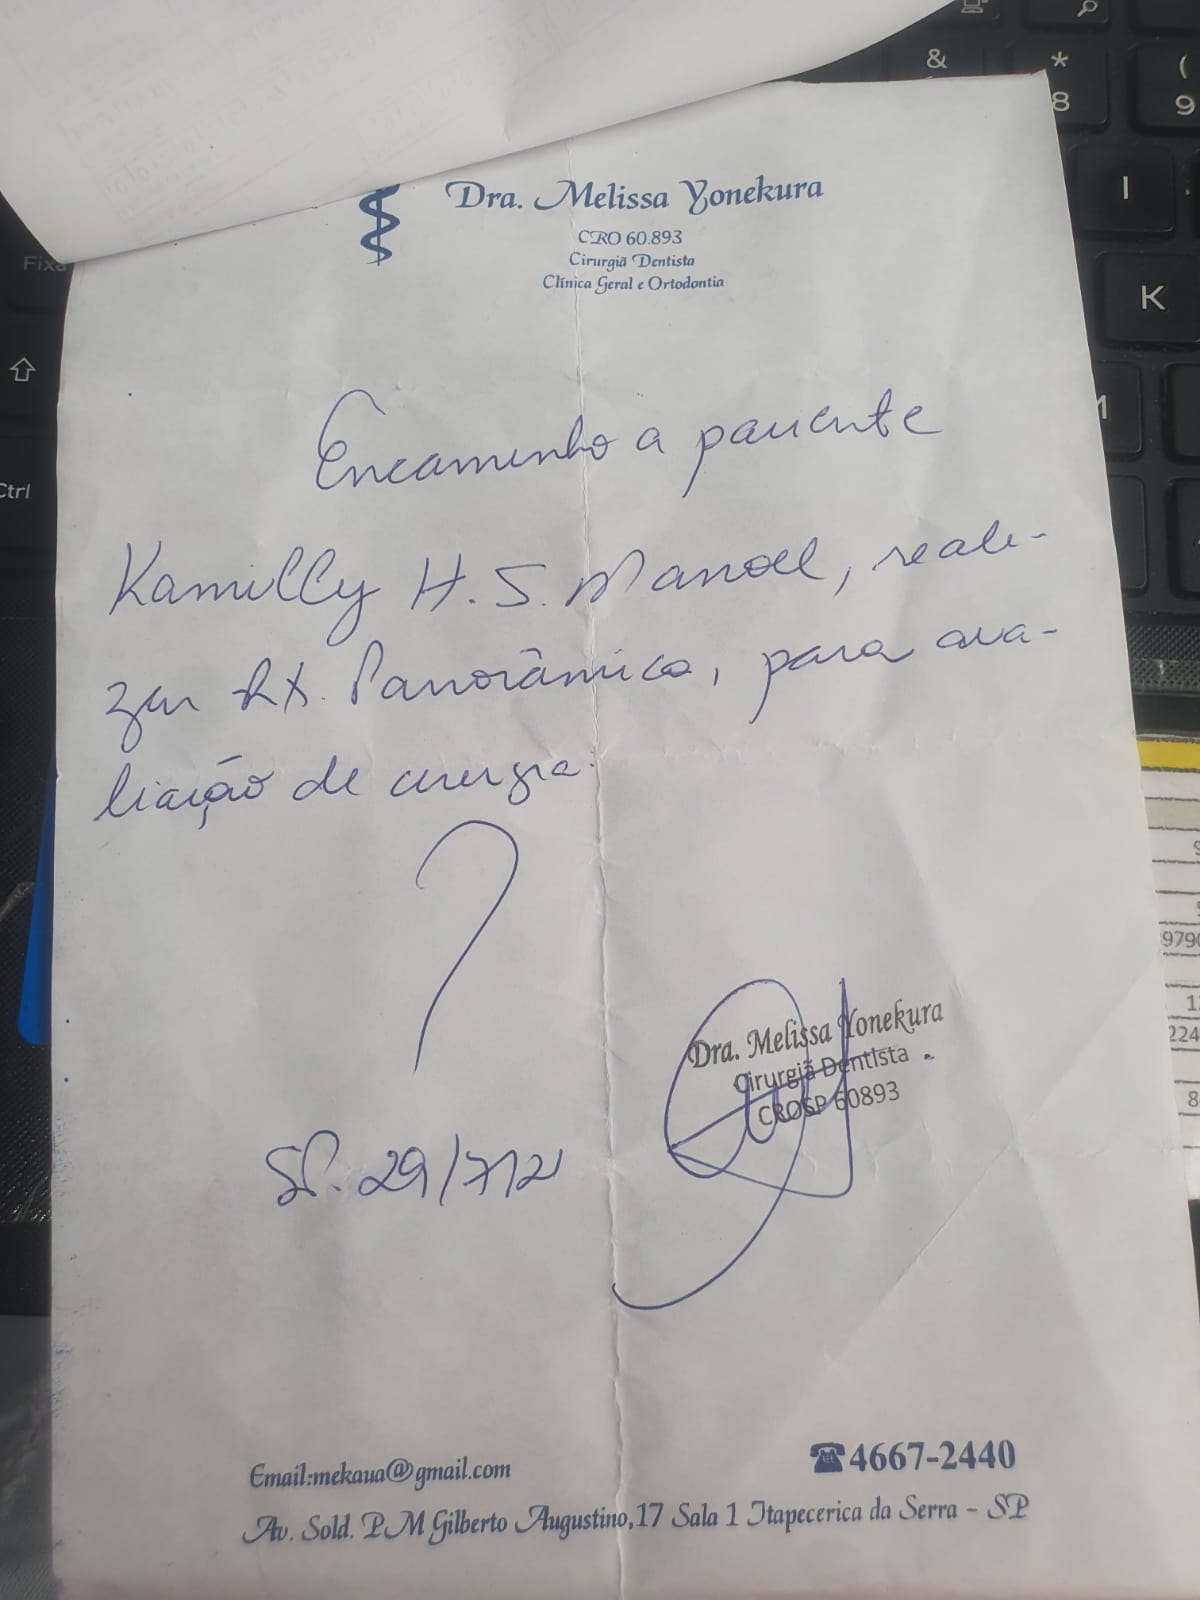 & * (
8 9
I
Fixa
K
Ctrl
Dra. Melissa Yonekura
CRO 60.893
Cirurgiã Dentista
Clínica Geral e Ortodontia
Encaminho a paciente
Kamilly H. S. Manoel, reali-
zar RX. Panorâmica, para ava-
liação de cirurgia.
Dra. Melissa Yonekura
Cirurgiã Dentista
CROSP 60893
SP. 29/7/21
Email:mekaua@gmail.com
☎4667-2440
Av. Sold. PM Gilberto Augustino,17 Sala 1 Itapecerica da Serra - SP
9790
224